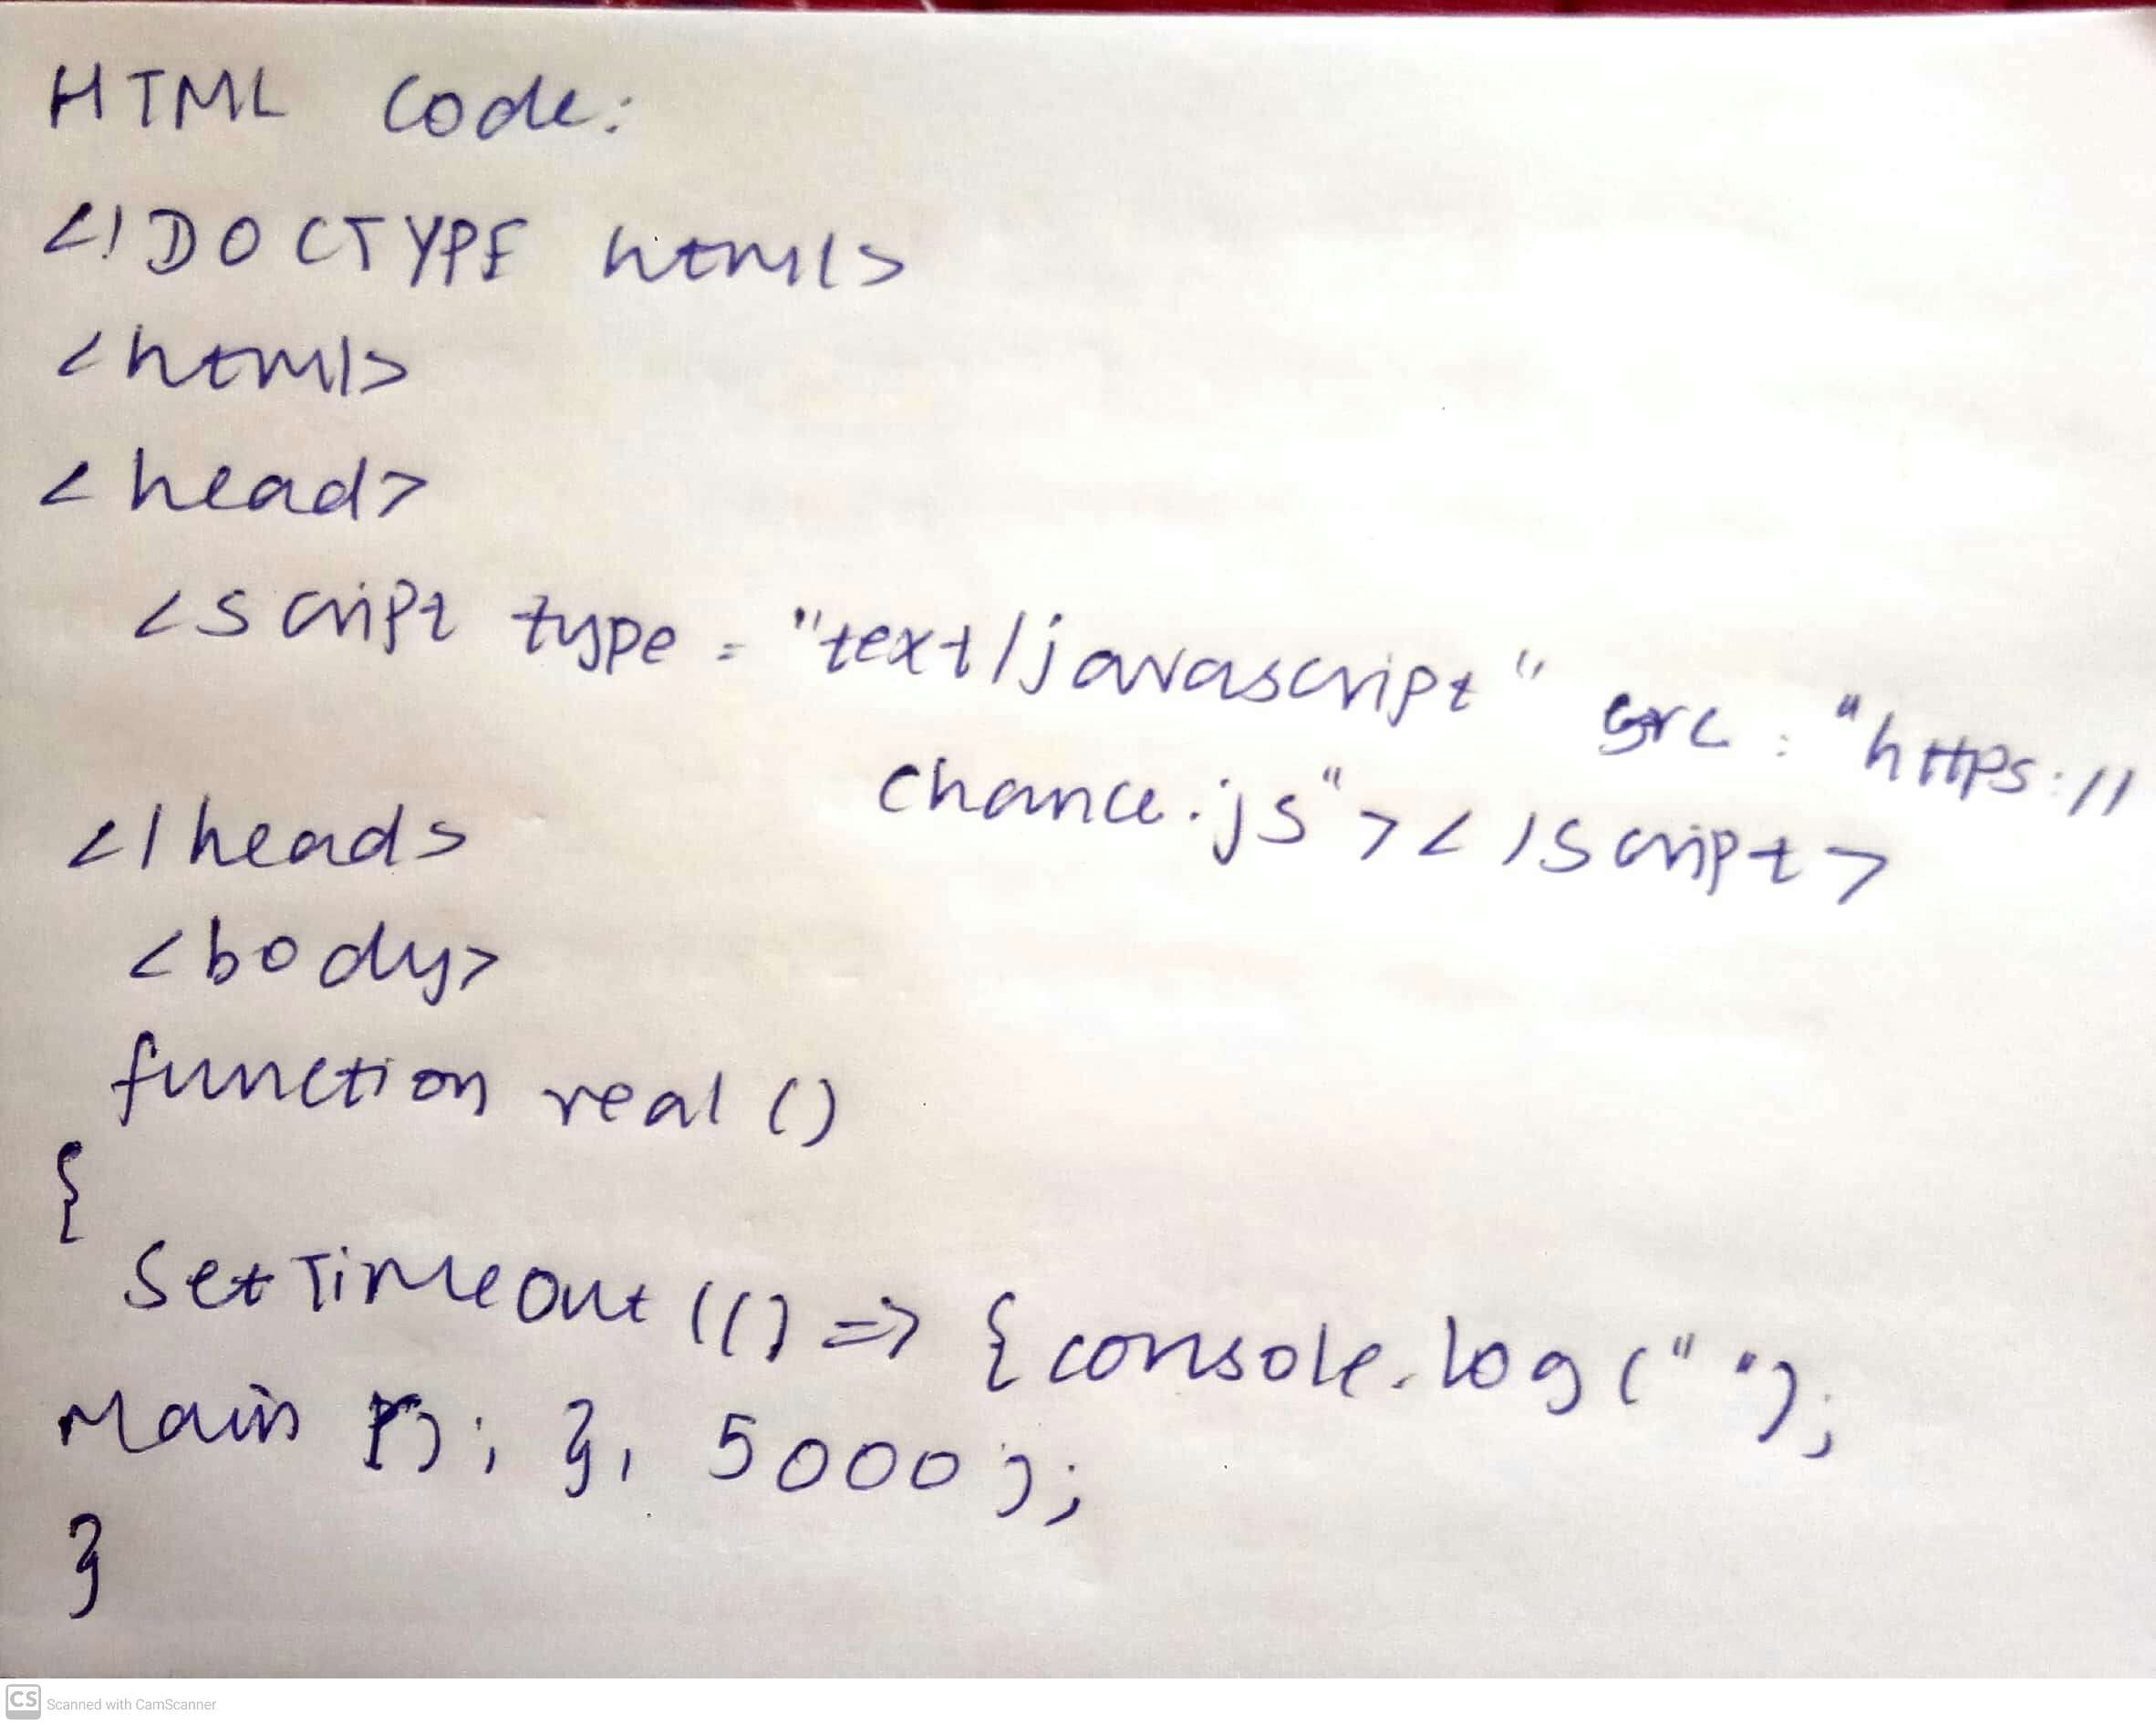 HTML code:
<!DOCTYPE html>
<html>
<head>
<script type = "text/javascript" src = "https://
chance.js"></script>
</head>
<body>
function real ()
{
SetTimeout (() => {console.log (" ");
Main (); }, 5000);
}
CS Scanned with CamScanner